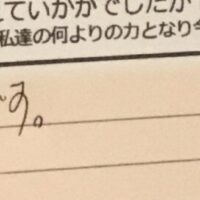 ていかがでしたか
私達の何よりの力となり今
す。